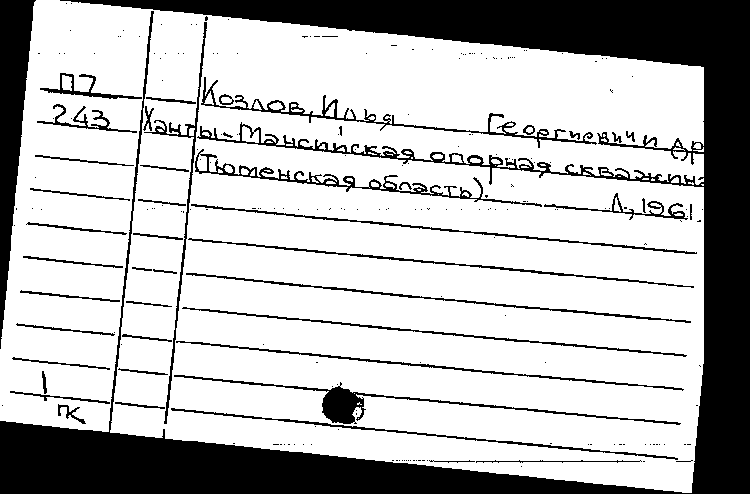 П7
Козлов, Илья Георгиевич и др
243
Ханты-Мансийская опорная скважина
(Тюменская область).
Л., 1961.
!
ПК